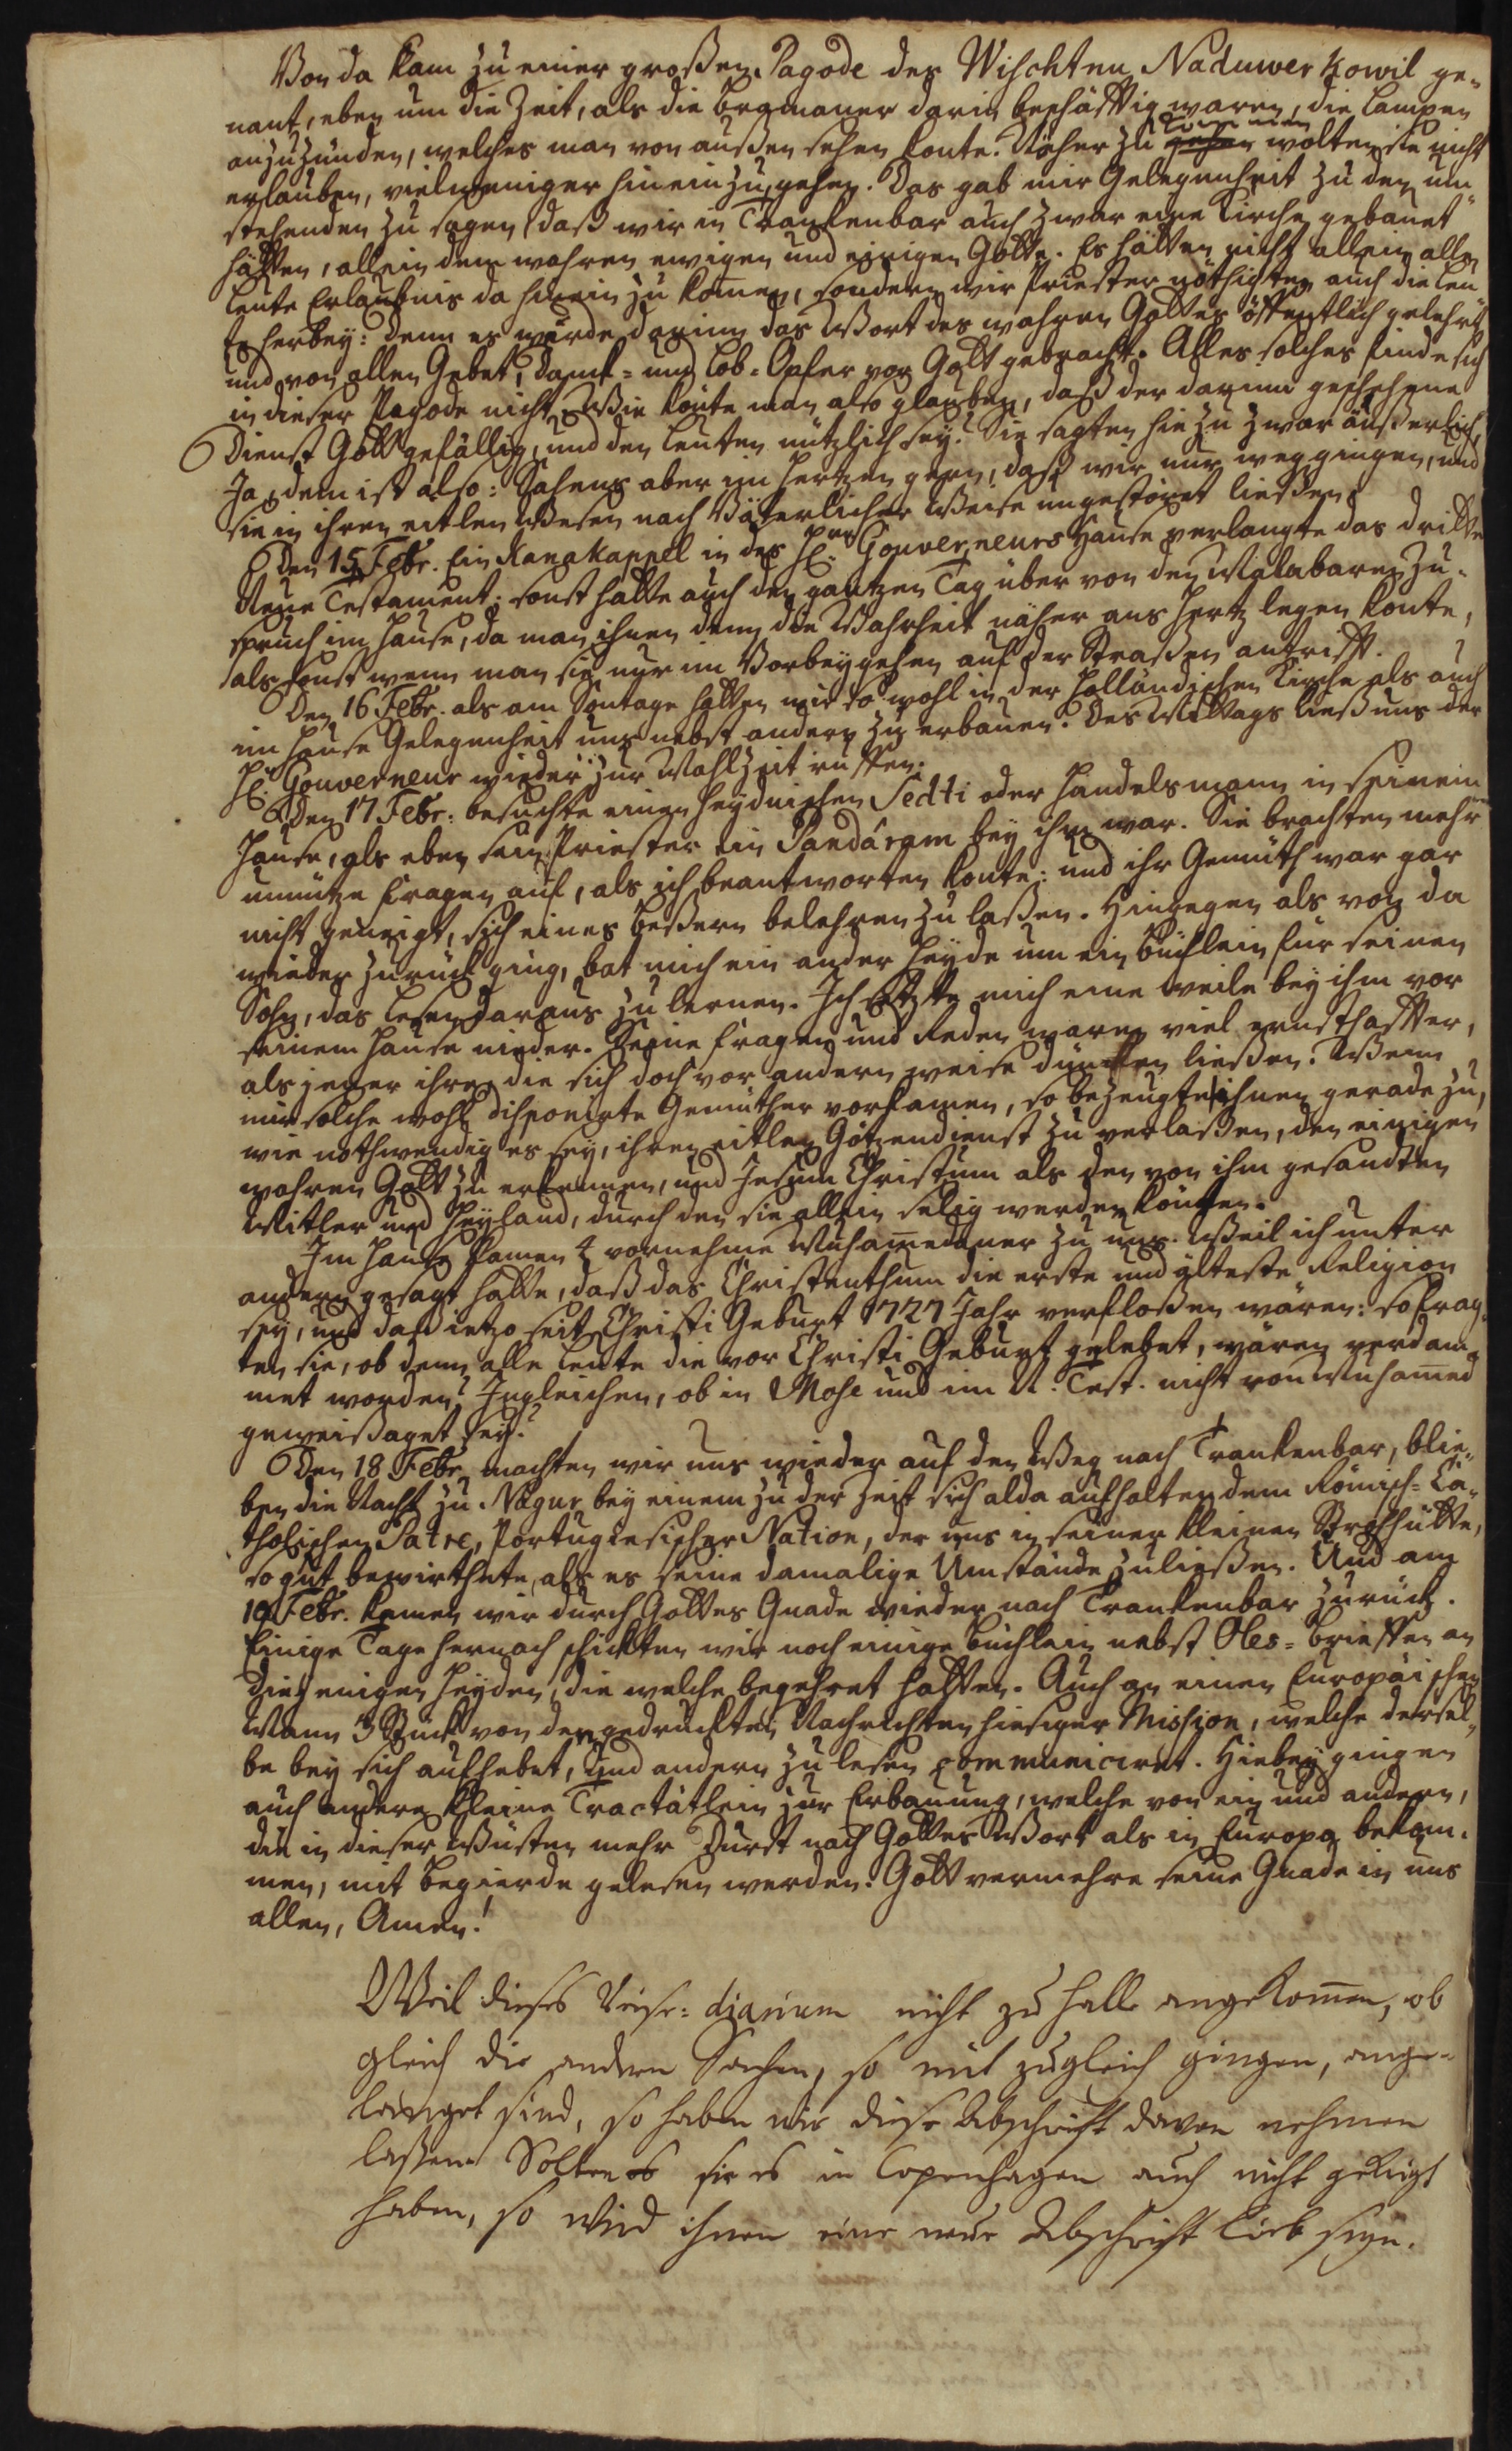 Von da kam zu einer großen Pagode des Wischtnu Naduwer kowil ge-
nant, eben um die Zeit, als die bramaner darin beschäfftig waren, die Lampen
anzuzünden, welches man von außen sehen konte. Näher zu kommen wolten sie nicht
erlauben, vielweniger hinein zu gehen. Das gab mir Gelegenheit zu den um-
stehenden zu sagen, daß wir in Trankenbar auch zwar eine Kirche gebauet
hätten, allein dem wahren ewigen und einigen Gotte. Es hätten nicht allein alle
Leute Erlaubnis da hinein zu komen, sondern wir Priester nöthigten auch die Leu-
te herbey: denn es würde darinn das Wort des wahren Gottes öffentlich gelehrt
und von allen Gebet, Danck- und Lob-Opfer vor Gott gebracht. Alles solches finde sich
in dieser Pagode nicht. Wie könte man also glauben, daß der darinn geschehene
Dienst Gott gefällig, und den Leuten nützlich sey? Sie sagten hiezu zwar äußerlich
Ja, dem ist also: Sahens aber im Hertzen gern, daß wir nur weg gingen, und
sie in ihren eitlen Wesen nach Väterlicher Weise ungestöret ließen.
Den 15 Febr. Ein Kanakappel in des H. Gouverneurs Hause verlangte das dritte
Neue Testament: sonst hatte auch den gantzen Tag über von den Malabaren Zu-
spruch im Hause, da man ihnen denn die Wahrheit näher ans Hertz legen konte,
als sonst wenn man sie nur im Vorbeygehen auf der Straßen antrifft.
Den 16 Febr. als am Sontage hatten wir so wohl in der Holländischen Kirche als auch
im Hause Gelegenheit uns nebst andern zu erbauen. Des Mittags ließ uns der
H. Gouverneur wieder zur Mahlzeit ruffen.
Den 17 Febr. besuchte einen heydnischen Sedti oder Handelsmann in seinem
Hause, als eben sein Priester ein Pandâram bey ihm war. Sie brachten mehr
unnütze Fragen auf, als ich beantworten konte: und ihr Gemüth war gar
nicht geneigt, sich eines beßern belehren zu laßen. Hingegen als von da
wieder zurück ging, bat mich ein ander Heyde um ein büchlein für seinen
Sohn, das Lesen daraus zu lernen. Ich setzte mich eine weile bey ihm vor
seinem Hause nieder. Seine Fragen und Reden waren viel ernsthaffter,
als jener ihre, die sich doch vor andern weise düncken ließen. Wenn
mir solche wohl disponirte Gemüther vorkamen, so bezeugte ihnen gerade zu,
wie nothwendig es sey, ihren eitlen Götzendienst zu verlaßen, den einigen
wahren Gott zu erkennen, und Jesum Christum als den von ihm gesandten
Mitler und Heyland, durch den sie allein selig werden könten.
Im Hause kamen 4 vornehme Muhamedaner zu uns. Weil ich unter
andern gesagt hatte, daß das Christenthum die erste und älteste Religion
sey, und daß ietzo seit Christi Geburt 1727 Jahr verfloßen wären: so frag-
ten sie, ob denn alle Leute die vor Christi Geburt gelebet, wären verdam-
met worden? Ingleichen, ob in Mose und im A. Test. nicht von Muhamed
geweißaget sey?
Den 18 Febr. machten wir uns wieder auf den Weg nach Trankenbar, blie-
ben die Nacht zu Nagur bey einem zu der Zeit sich alda aufhaltendem Römisch-Ca-
tholischen Patre, Portugiesischer Nation, der uns in seiner kleinen Strohhütte,
so gut bewirthete, als es seine damalige Umstände zuließen. Und am
19 Febr. kamen wir durch Gottes Gnade wieder nach Trankenbar zurück.
Einige Tage hernach schickten wir noch einige büchlein nebst Oles-brieffen an
diejenigen Heyden, die welche begehret hatten. Auch an einen Europäischen
Mann 3 Stück von den gedruckten Nachrichten hiesiger Mission, welche dersel-
be bey sich aufhebet, und andern zu lesen communiciret. Hiebey gingen
auch andere kleine Tractätlein zur Erbauung, welche von ein und andern,
die in dieser Wüsten mehr Durst nach Gottes Wort als in Europa bekom-
men, mit begierde gelesen werden. Gott vermehre seine Gnade in uns
allen, Amen!
Weil dieses Reise-diarium nicht zu Halle angekommen, ob
gleich die andern Sachen, so mit zugleich gingen, ange-
langet sind, so haben wir diese Abschrifft davon nehmen
laßen. Solten sie es in Copenhagen auch nicht gekriegt
haben, so wird ihnen eine neue Abschrifft lieb seyn.